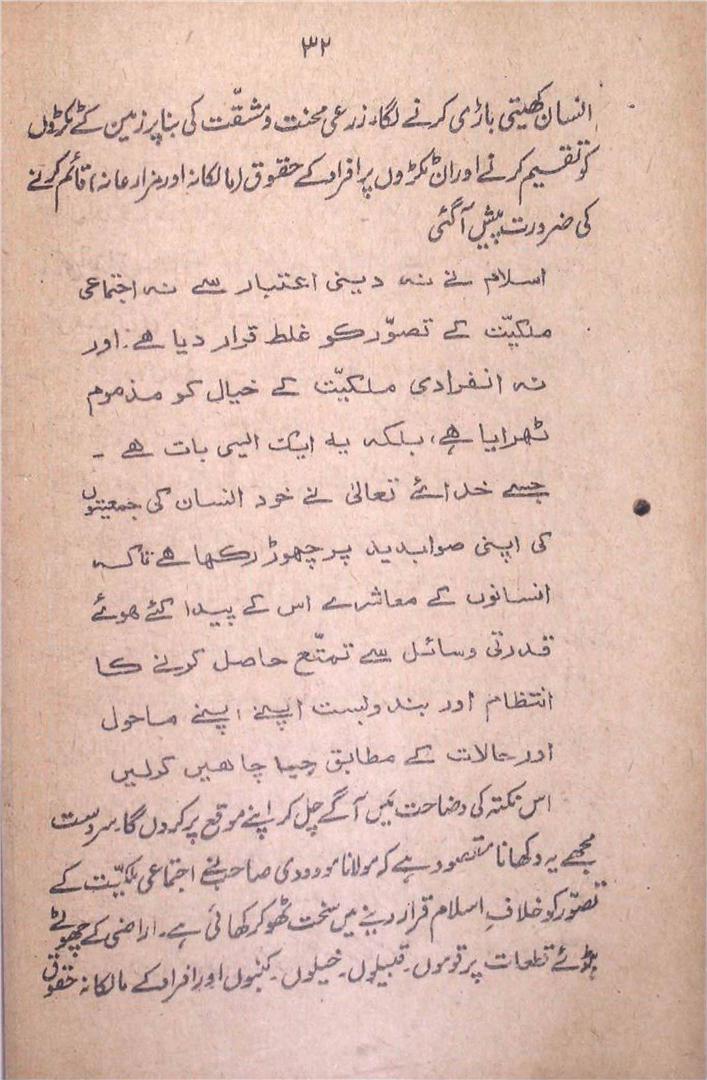 ۳۲
انسان کھیتی باڑی کرنے لگا۔ زرعی محنت و مشقّت کی بنا پر زمین کے ٹکڑوں
کو تقسیم کرنے اور ان ٹکڑوں پر افراد کے حقوق (مالکانہ اور مزارعانہ) قائم کرنے
کی ضرورت پیش آگئی
اسلام نے نہ دینی اعتبار سے نہ اجتماعی
ملکیّت کے تصوّر کو غلط قرار دیا ہے۔ اور
نہ انفرادی ملکیّت کے خیال کو مذموم
ٹھرایا ہے، بلکہ یہ ایک ایسی بات ہے ۔
جسے خدائے تعالیٰ نے خود انسان کی جمعیتوں
کی اپنی صوابدید پر چھوڑ رکھا ہے تاکہ
انسانوں کے معاشرے اس کے پیدا کئے ھوئے
قدرتی وسائل سے تمتّع حاصل کرنے کا
انتظام اور بندوبست اپنے اپنے ماحول
اور حالات کے مطابق جیسا چاھیں کرلیں
اس نکتہ کی وضاحت میں آگے چل کر اپنے موقع پر کردں گا۔ سردست
مجھے یہ دکھانا مقصود ہے کہ مولانا مودودی صاحب نے اجتماعی ملکیّت کے
تصوّر کو خلافِ اسلام قرار دینے میں سخت ٹھوکر کھائی ہے۔ اراضی کے چھوٹے
بڑے قطعات پر قوموں۔ قبیلوں۔ خیلوں۔ کنبوں اور افراد کے مالکانہ حقوق